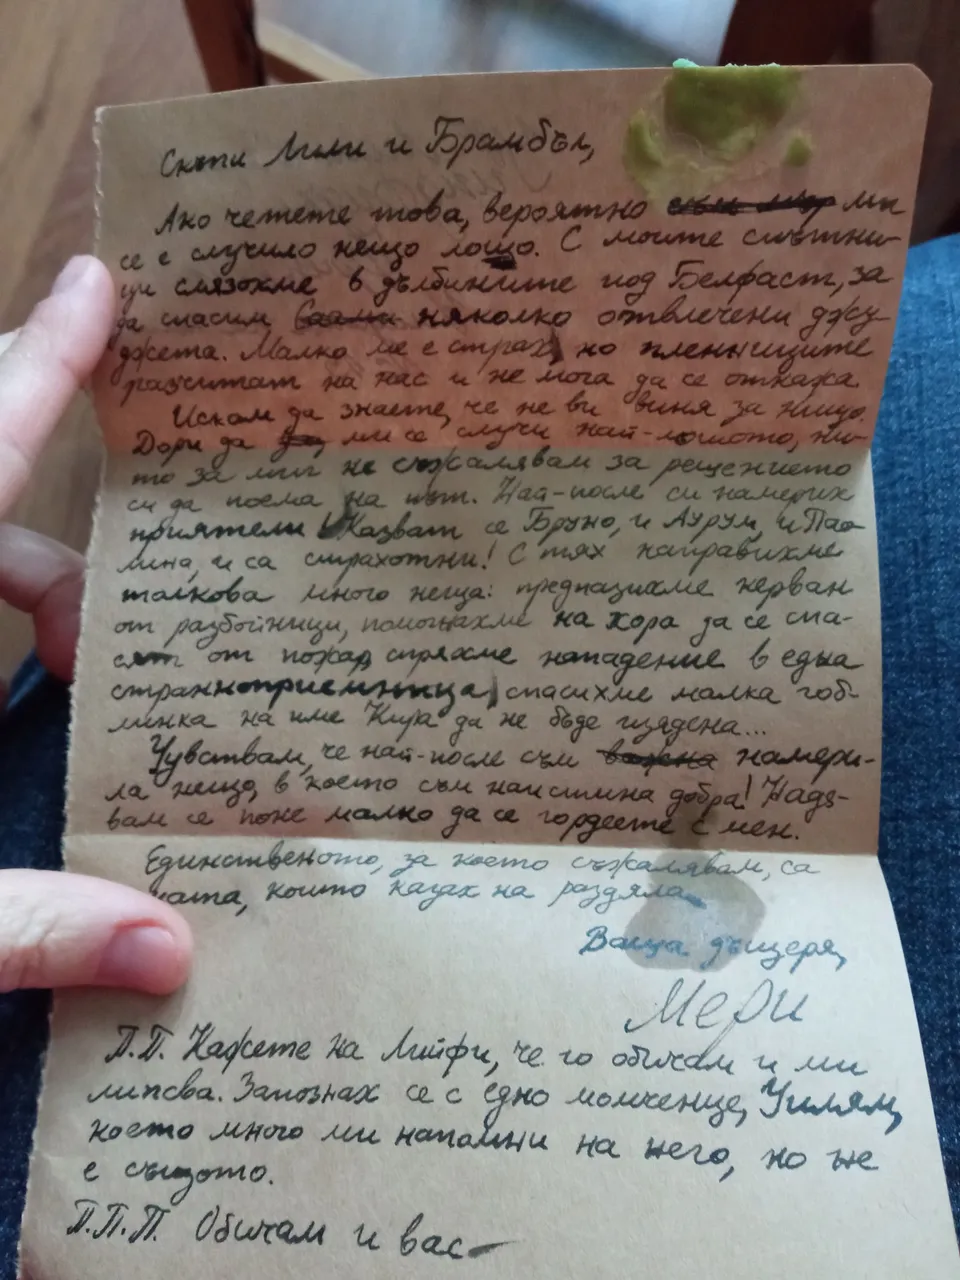 Скъпи Лили и Брамбъл,
Ако четете това, вероятно ми
се е случило нещо лошо. С моите спътни-
ци слязохме в дълбините под Белфаст, за
да спасим няколко отвлечени джу-
джета. Малко ме е страх, но пленниците
разчитат на нас и не мога да се откажа.
Искам да знаете, че не ви виня за нищо.
Дори да ми се случи най-лошото, ни-
то за миг не съжалявам за решението
си да поема на път. Най-после си намерих
приятели! Казват се Бруно, и Аурум, и Пао-
лина, и са страхотни! С тях направихме
толкова много неща: предпазихме керван
от разбойници, помогнахме на хора да се спа-
сят от пожар, спряхме нападение в една
странноприемница, спасихме малка гоб-
линка на име Кира да не бъде изядена...
Чувствам, че най-после съм намери-
ла нещо, в което съм наистина добра! Надя-
вам се поне малко да се гордеете с мен.
Единственото, за което съжалявам, са
които казах на раздяла.
Ваша дъщеря,
Мери
П.П. Кажете на Лийфи, че го обичам и ми
липсва. Запознах се с едно момченце, Уилям,
което много ми напомни на него, но не
е същото.
П.П.П. Обичам и вас